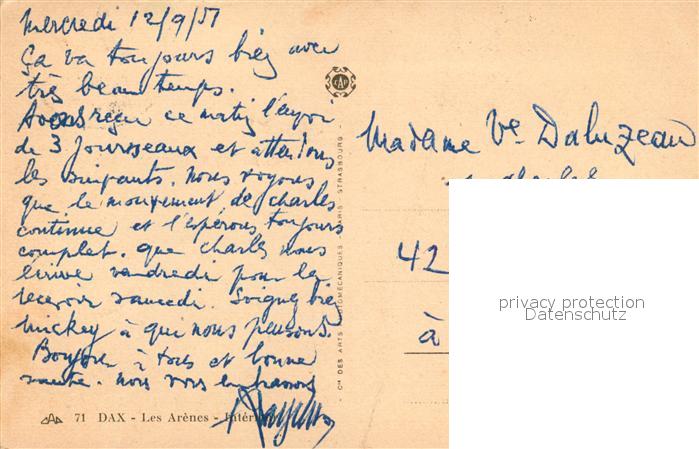 Mercredi 12/9/51
Ça va toujours bien avec
très beau temps.
Avons reçu ce matin l'envoi
de 3 journaux et attendons
les suivants. nous voyons
que le mouvement de charles
continue et l'espérons toujours
complet. que charles nous
écrive vendredi pour la
recevoir samedi. Soignez bien
mickey à qui nous pensons.
Bonjour à tous et bonne
santé. nous vous embrassons
CAP
Cie DES ARTS PHOTOMÉCANIQUES - PARIS - STRASBOURG -
Madame Ve Daluzeau
42
à
privacy protection
Datenschutz
71 DAX - Les Arènes - Intérieur